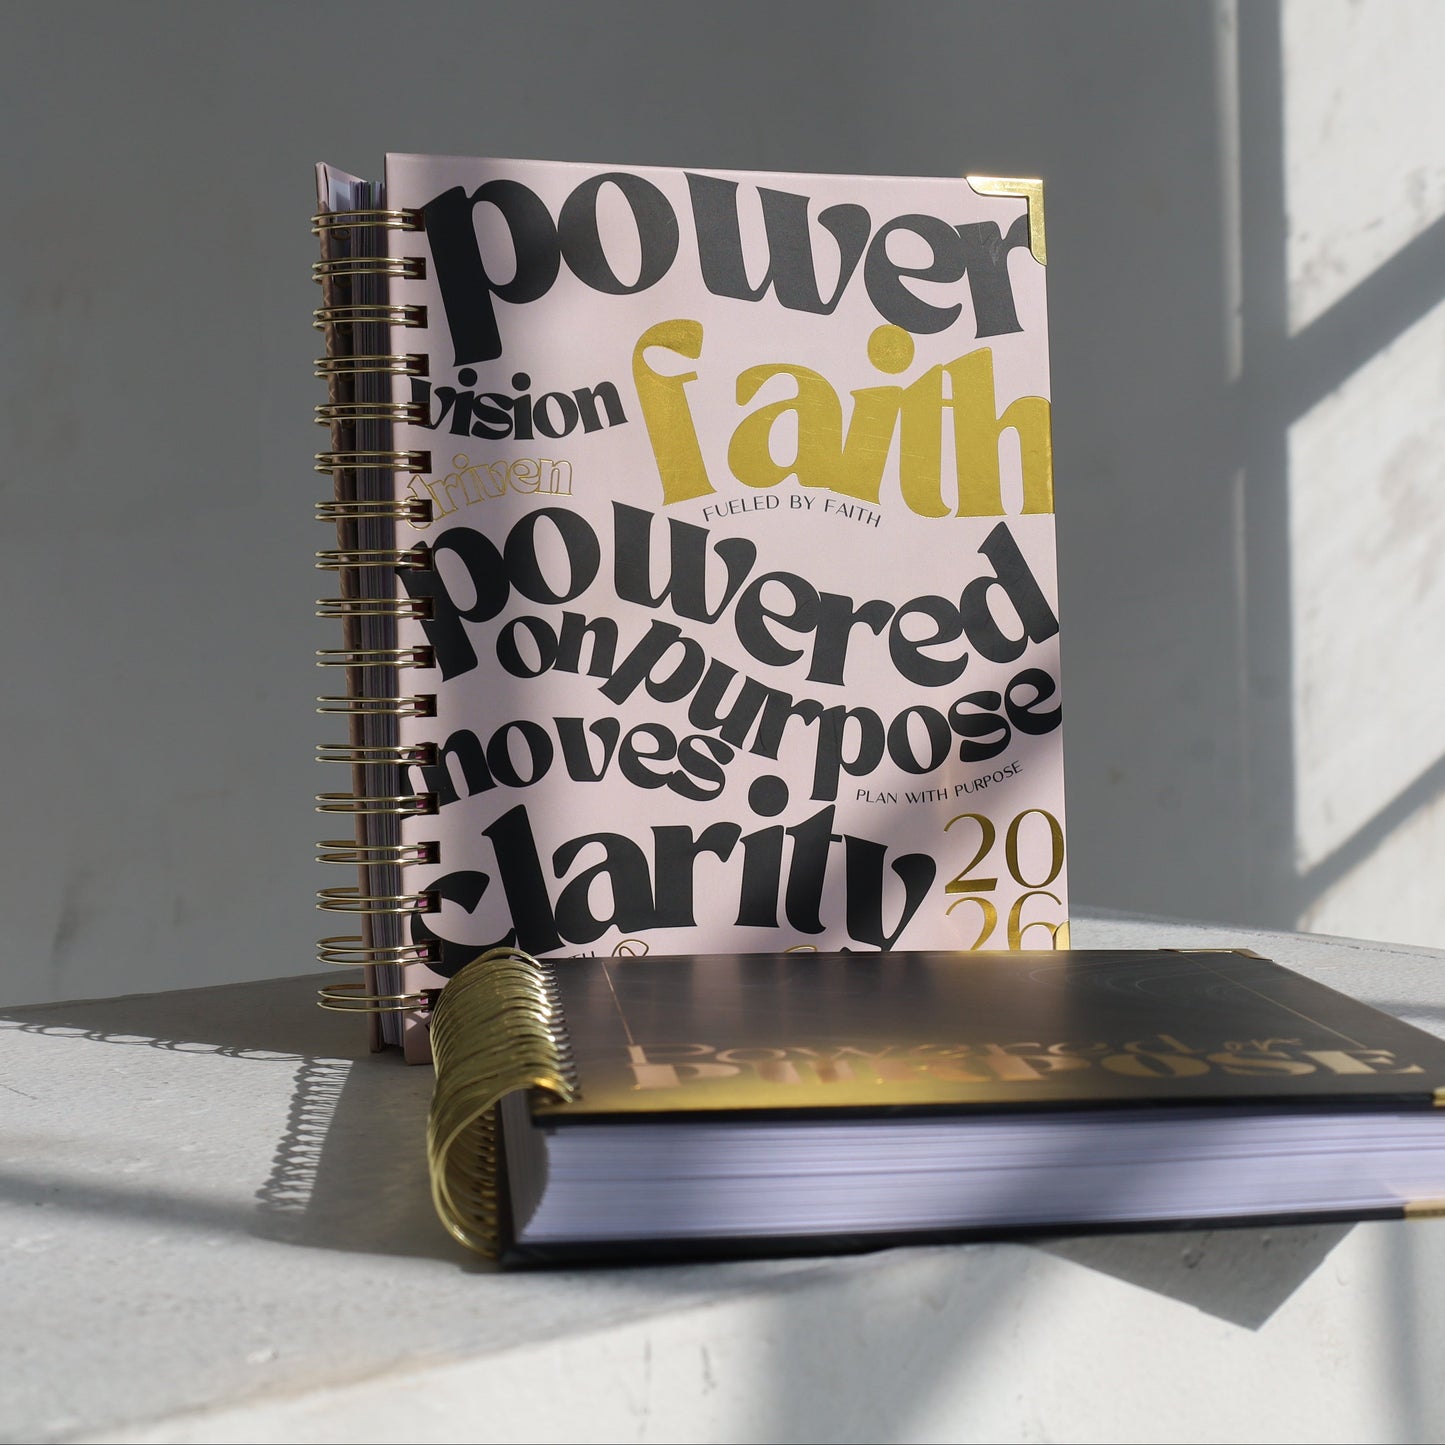 power
vision faith
driven
FUELED BY FAITH
powered
on purpose
moves
PLAN WITH PURPOSE
clarity
20
26
powered on
PURPOSE